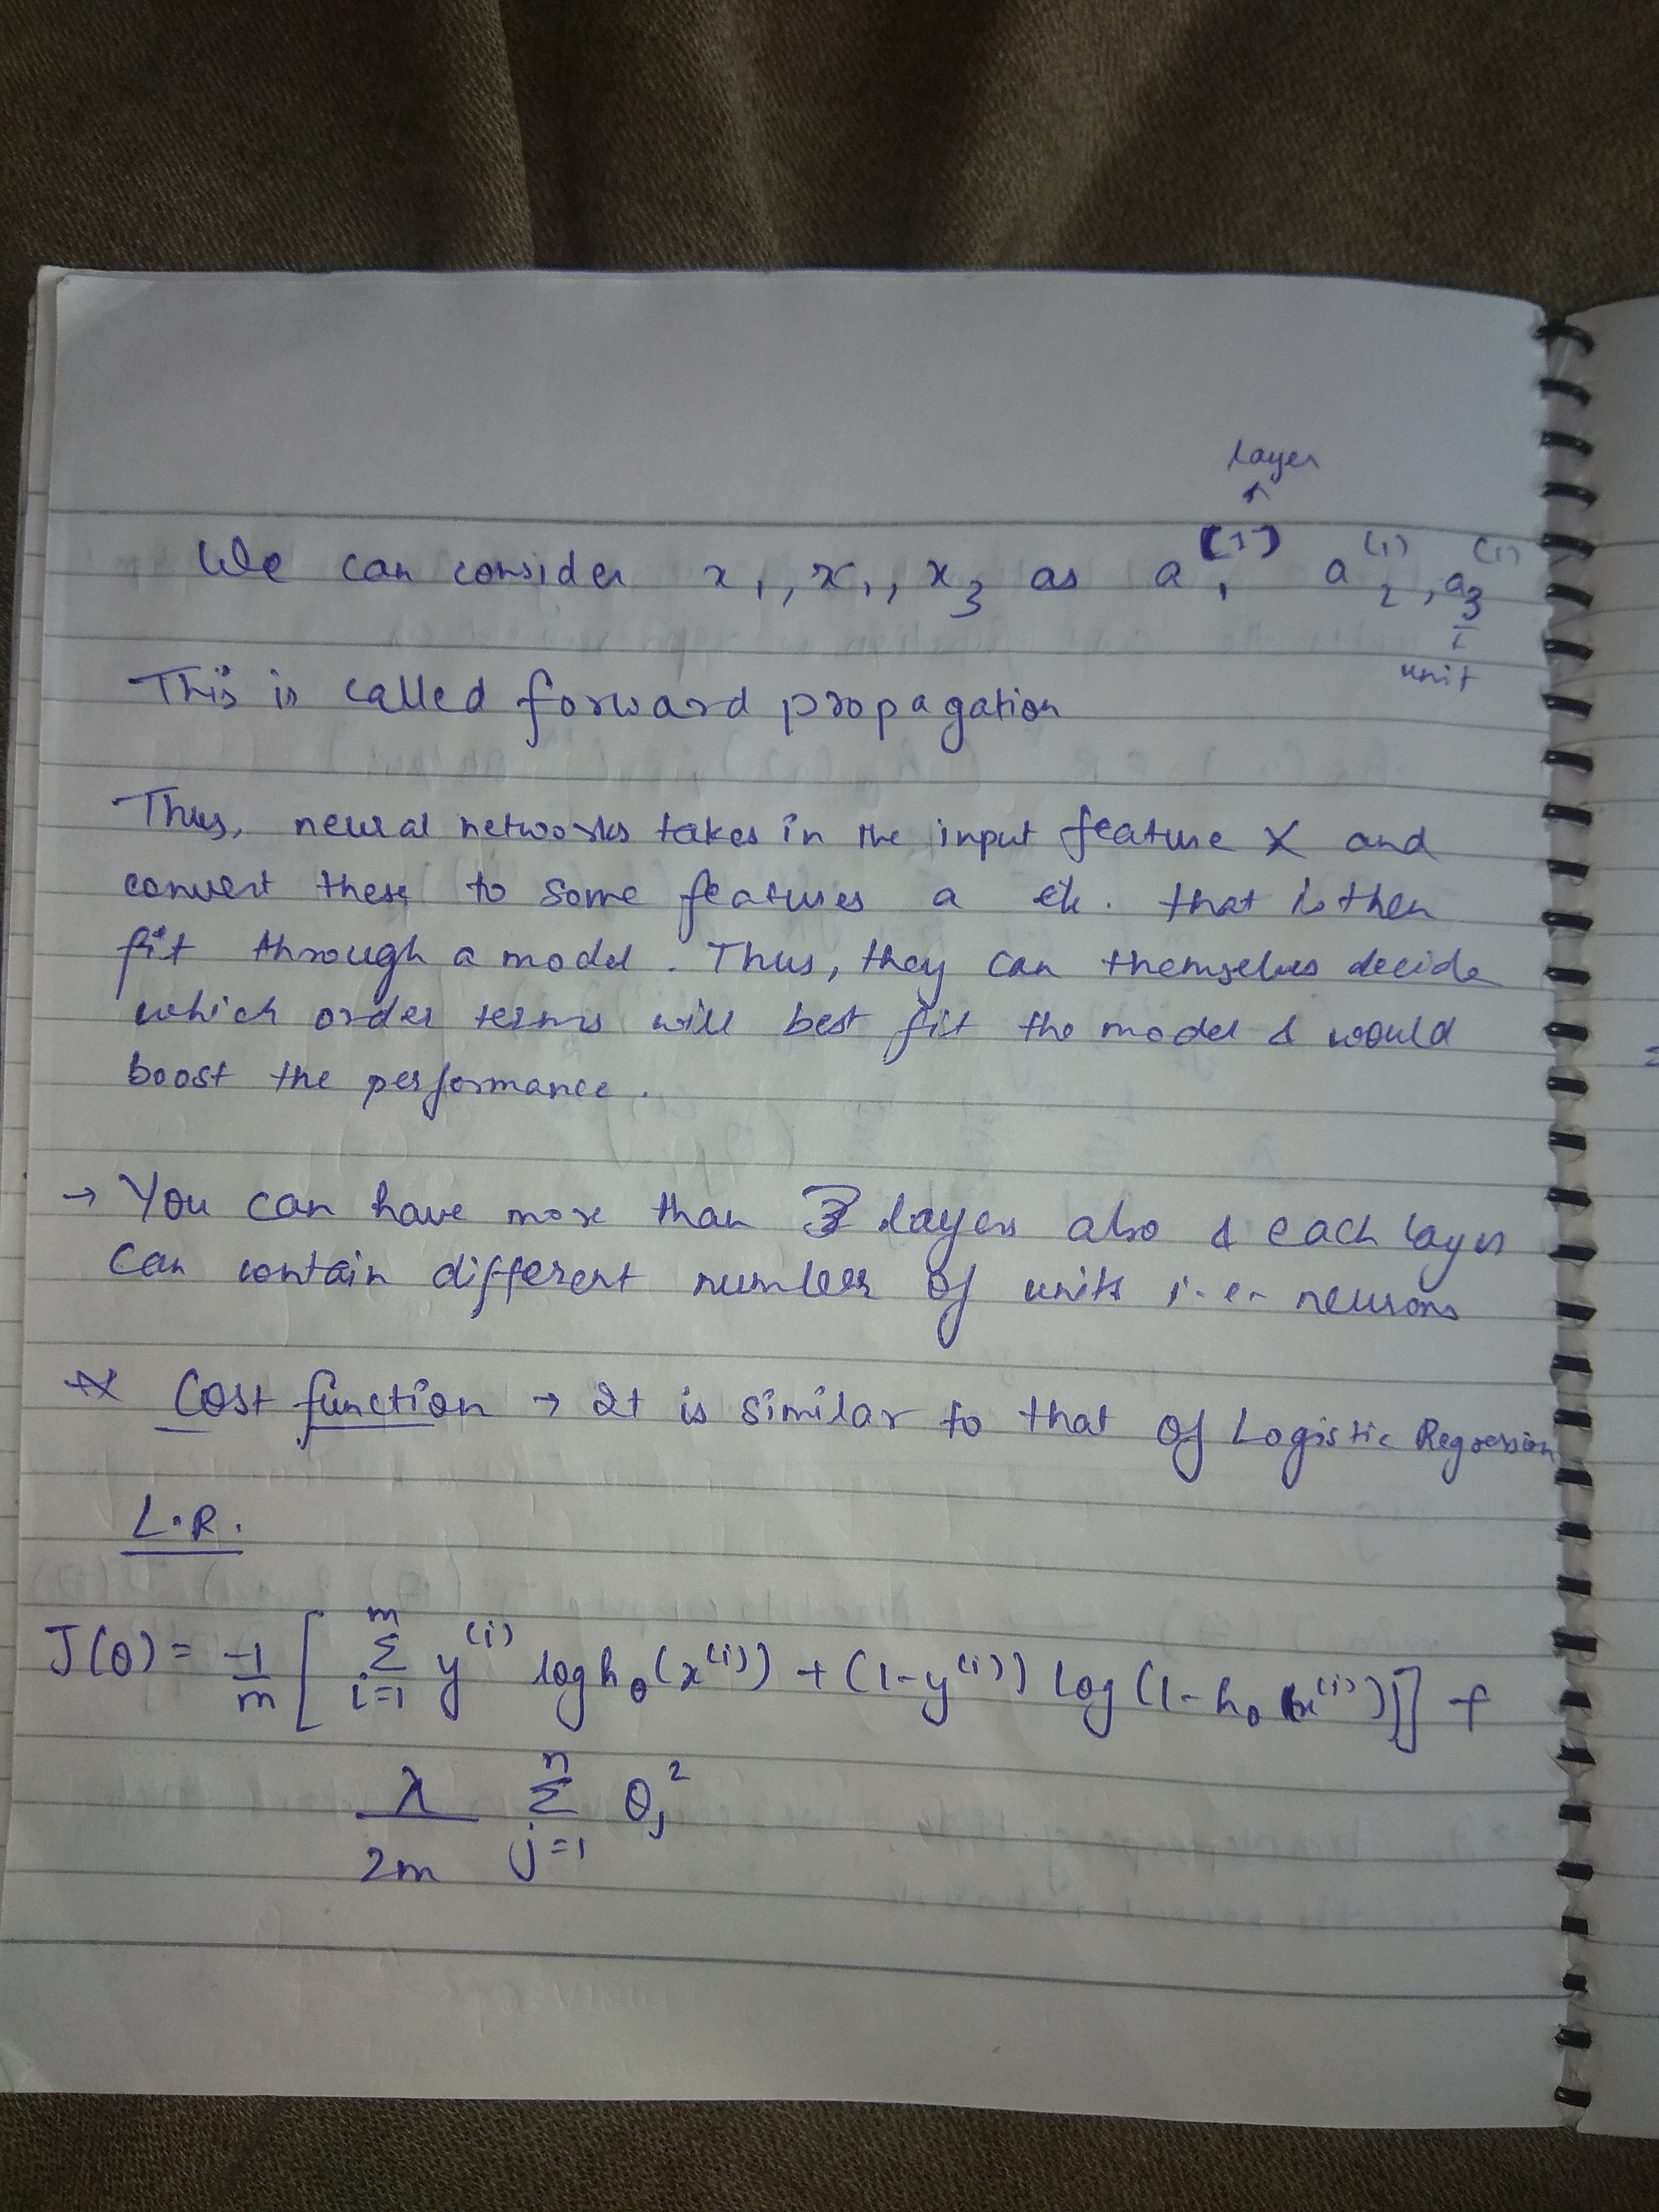 layer
We can consider x₁, x₁, x₃ as a₁⁽¹⁾ a₂⁽¹⁾, a₃⁽¹⁾
unit
This is called forward propagation
Thus, neural networks takes in the input feature X and
convert these to some features a etc. that is then
fit through a model. Thus, they can themselves decide
which order terms will best fit the model & would
boost the performance.
→ You can have more than 3 layers also & each layer
can contain different number of units i.e. neurons
* Cost function → It is similar to that of Logistic Regression
L.R.
J(θ) = -1/m [ Σᵢ₌₁ᵐ y⁽ⁱ⁾ log h_θ(x⁽ⁱ⁾) + (1-y⁽ⁱ⁾) log (1-h_θ(x⁽ⁱ⁾)) ] +
λ/2m Σⱼ₌₁ⁿ θⱼ²